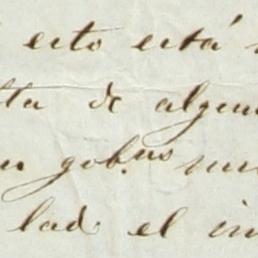 esto está
de algun
gob.nos
lad el in